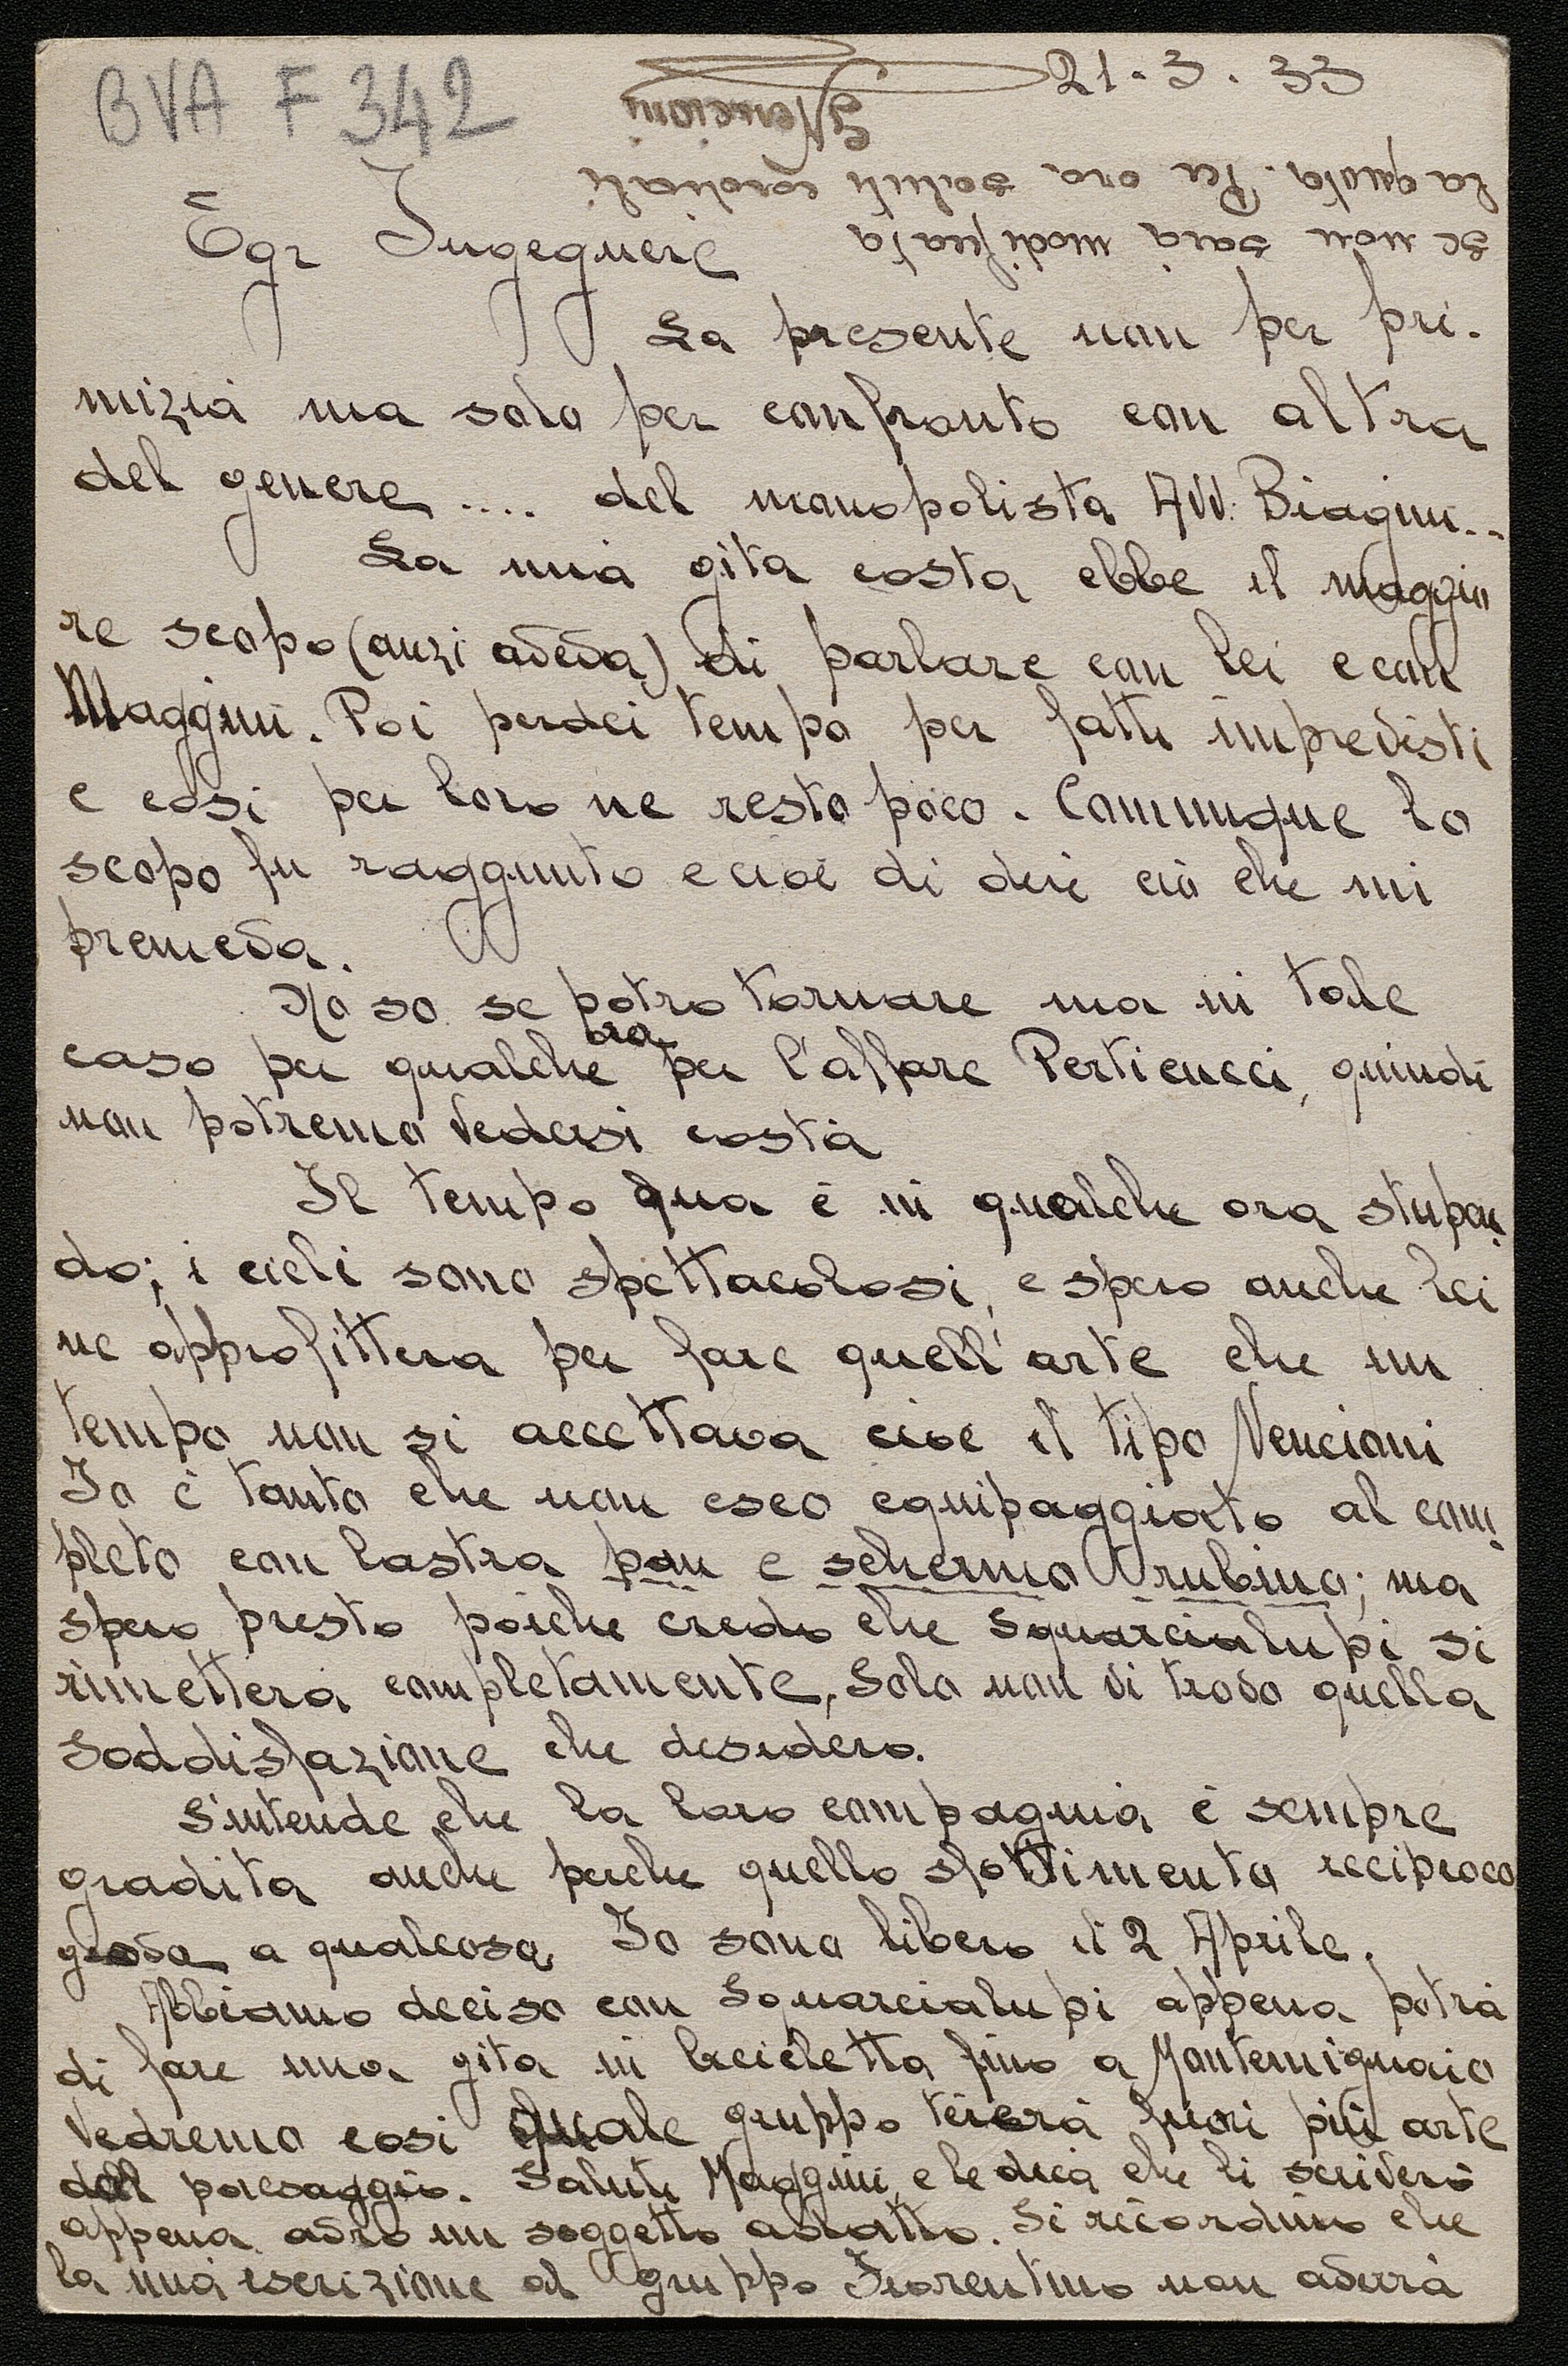 BVA F 342
21.3.33
Egr Ingegnere
La presente non per pri-
mizia ma solo per confronto con altra
del genere .... del monopolista AVV. Biagini..
La mia gita costa ebbe il maggio
re scopo (anzi aveva) di parlare con lei e con
Maggini. Poi perdei tempo per fatti imprevisti
e cosi per loro ne resto poco. Comunque lo
scopo fu raggiunto e cioè di dire ciò che mi
premeva.
No so se potro tornare ma in tale
caso per qualche ora per l'affare Perticucci, quindi
non potremo vedersi costà
Il tempo qua è in qualche ora stupen
do; i cieli sono spettacolosi, e spero anche lei
ne approfittera per fare quell'arte che un
tempo non si accettava cioe il tipo Nencioni
Io è tanto che non esco equipaggiato al com
pleto con lastra pan e schermo rubino; ma
spero presto poiche credo che Squarcialupi si
rimetterà completamente, Solo non vi trovo quella
soddisfazione che desidero.
S'intende che la loro compagnia è sempre
gradita anche perche quello sfottimento reciproco
giova a qualcosa. Io sono libero il 2 Aprile.
Abbiamo deciso con Squarcialupi appena potrà
di fare una gita in bicicletta fino a Montemignaio
Vedremo cosi quale gruppo tirerà fuori più arte
dal paesaggio. Saluti Maggini e le dica che li scriverò
appena avrò un soggetto adatto. Si ricordino che
la mia iscrizione al gruppo Fiorentino non avverrà
se non sarà modificata
la quota. Per ora saluti cordiali
GNencioni